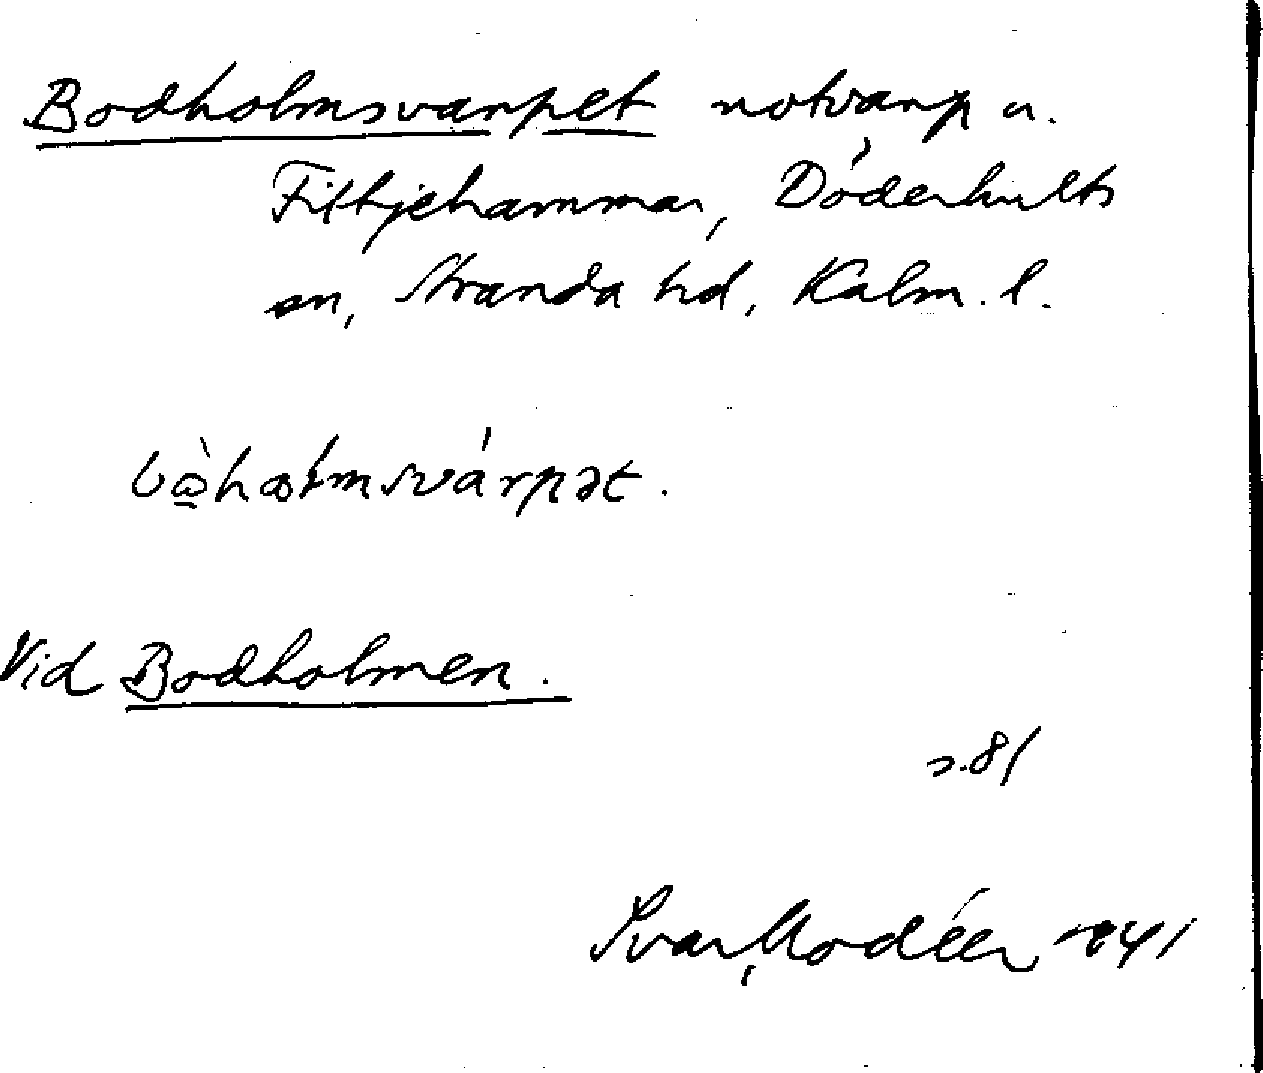 Bodholmsvarpet notvarp u.
Fittjehammar, Döderhults
sn, Stranda hd, Kalm. l.
bòhoɫmsvárpət.
Vid Bodholmen.
s. 81
Ivar Modéer 1941